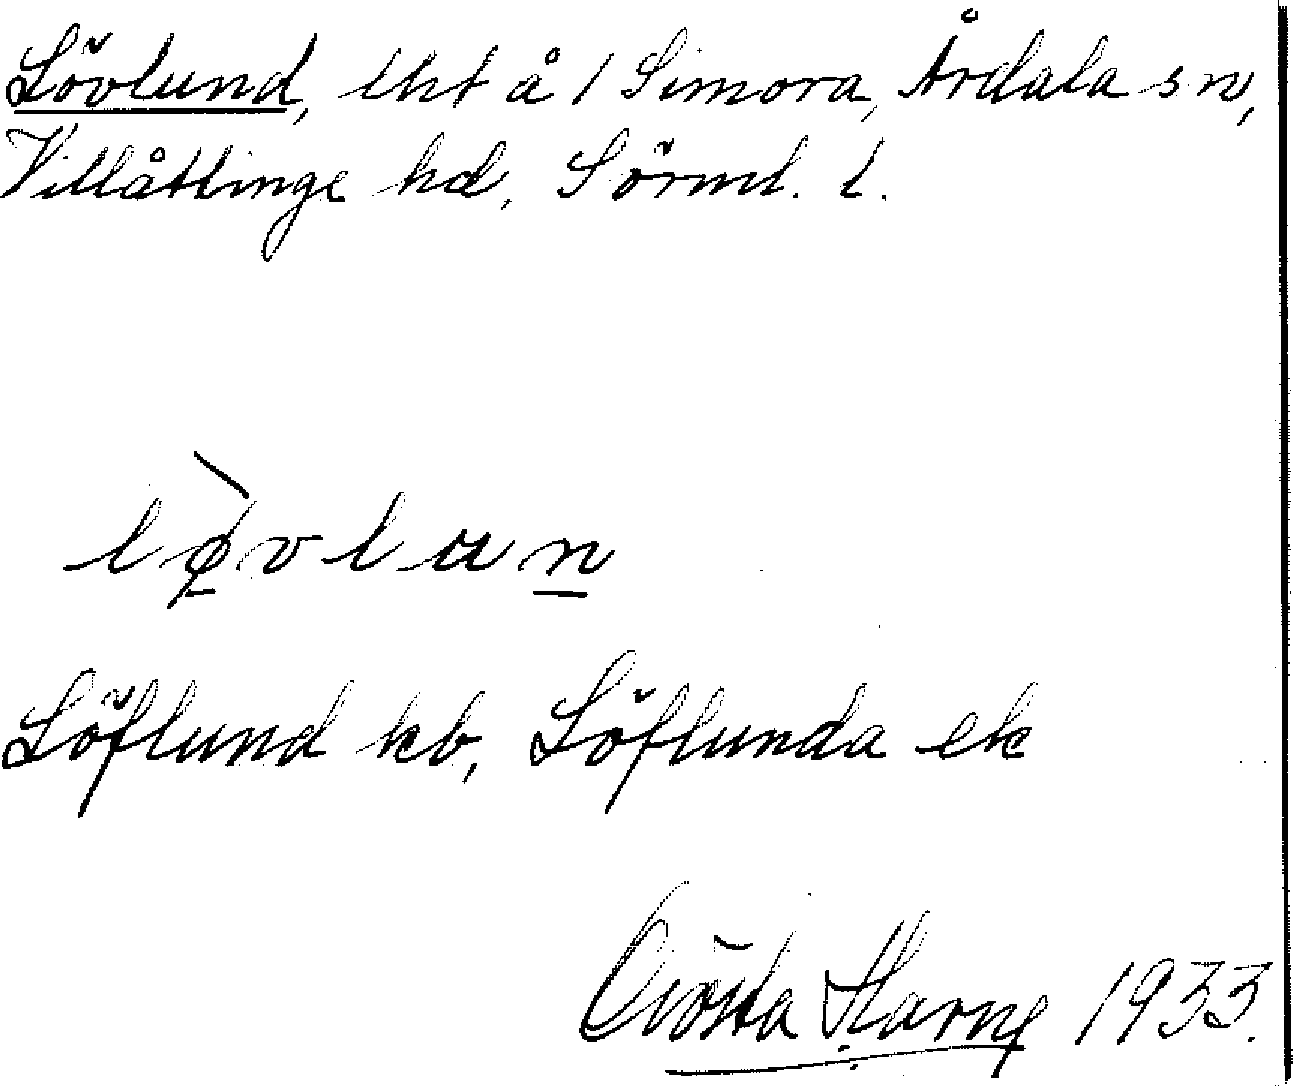 Lövlund, lht å 1 Simora, Årdala sn,
Villåttinge hd, Sörml. l.
lø̀vlun
Löflund kb, Löflunda ek
Gösta 1933.